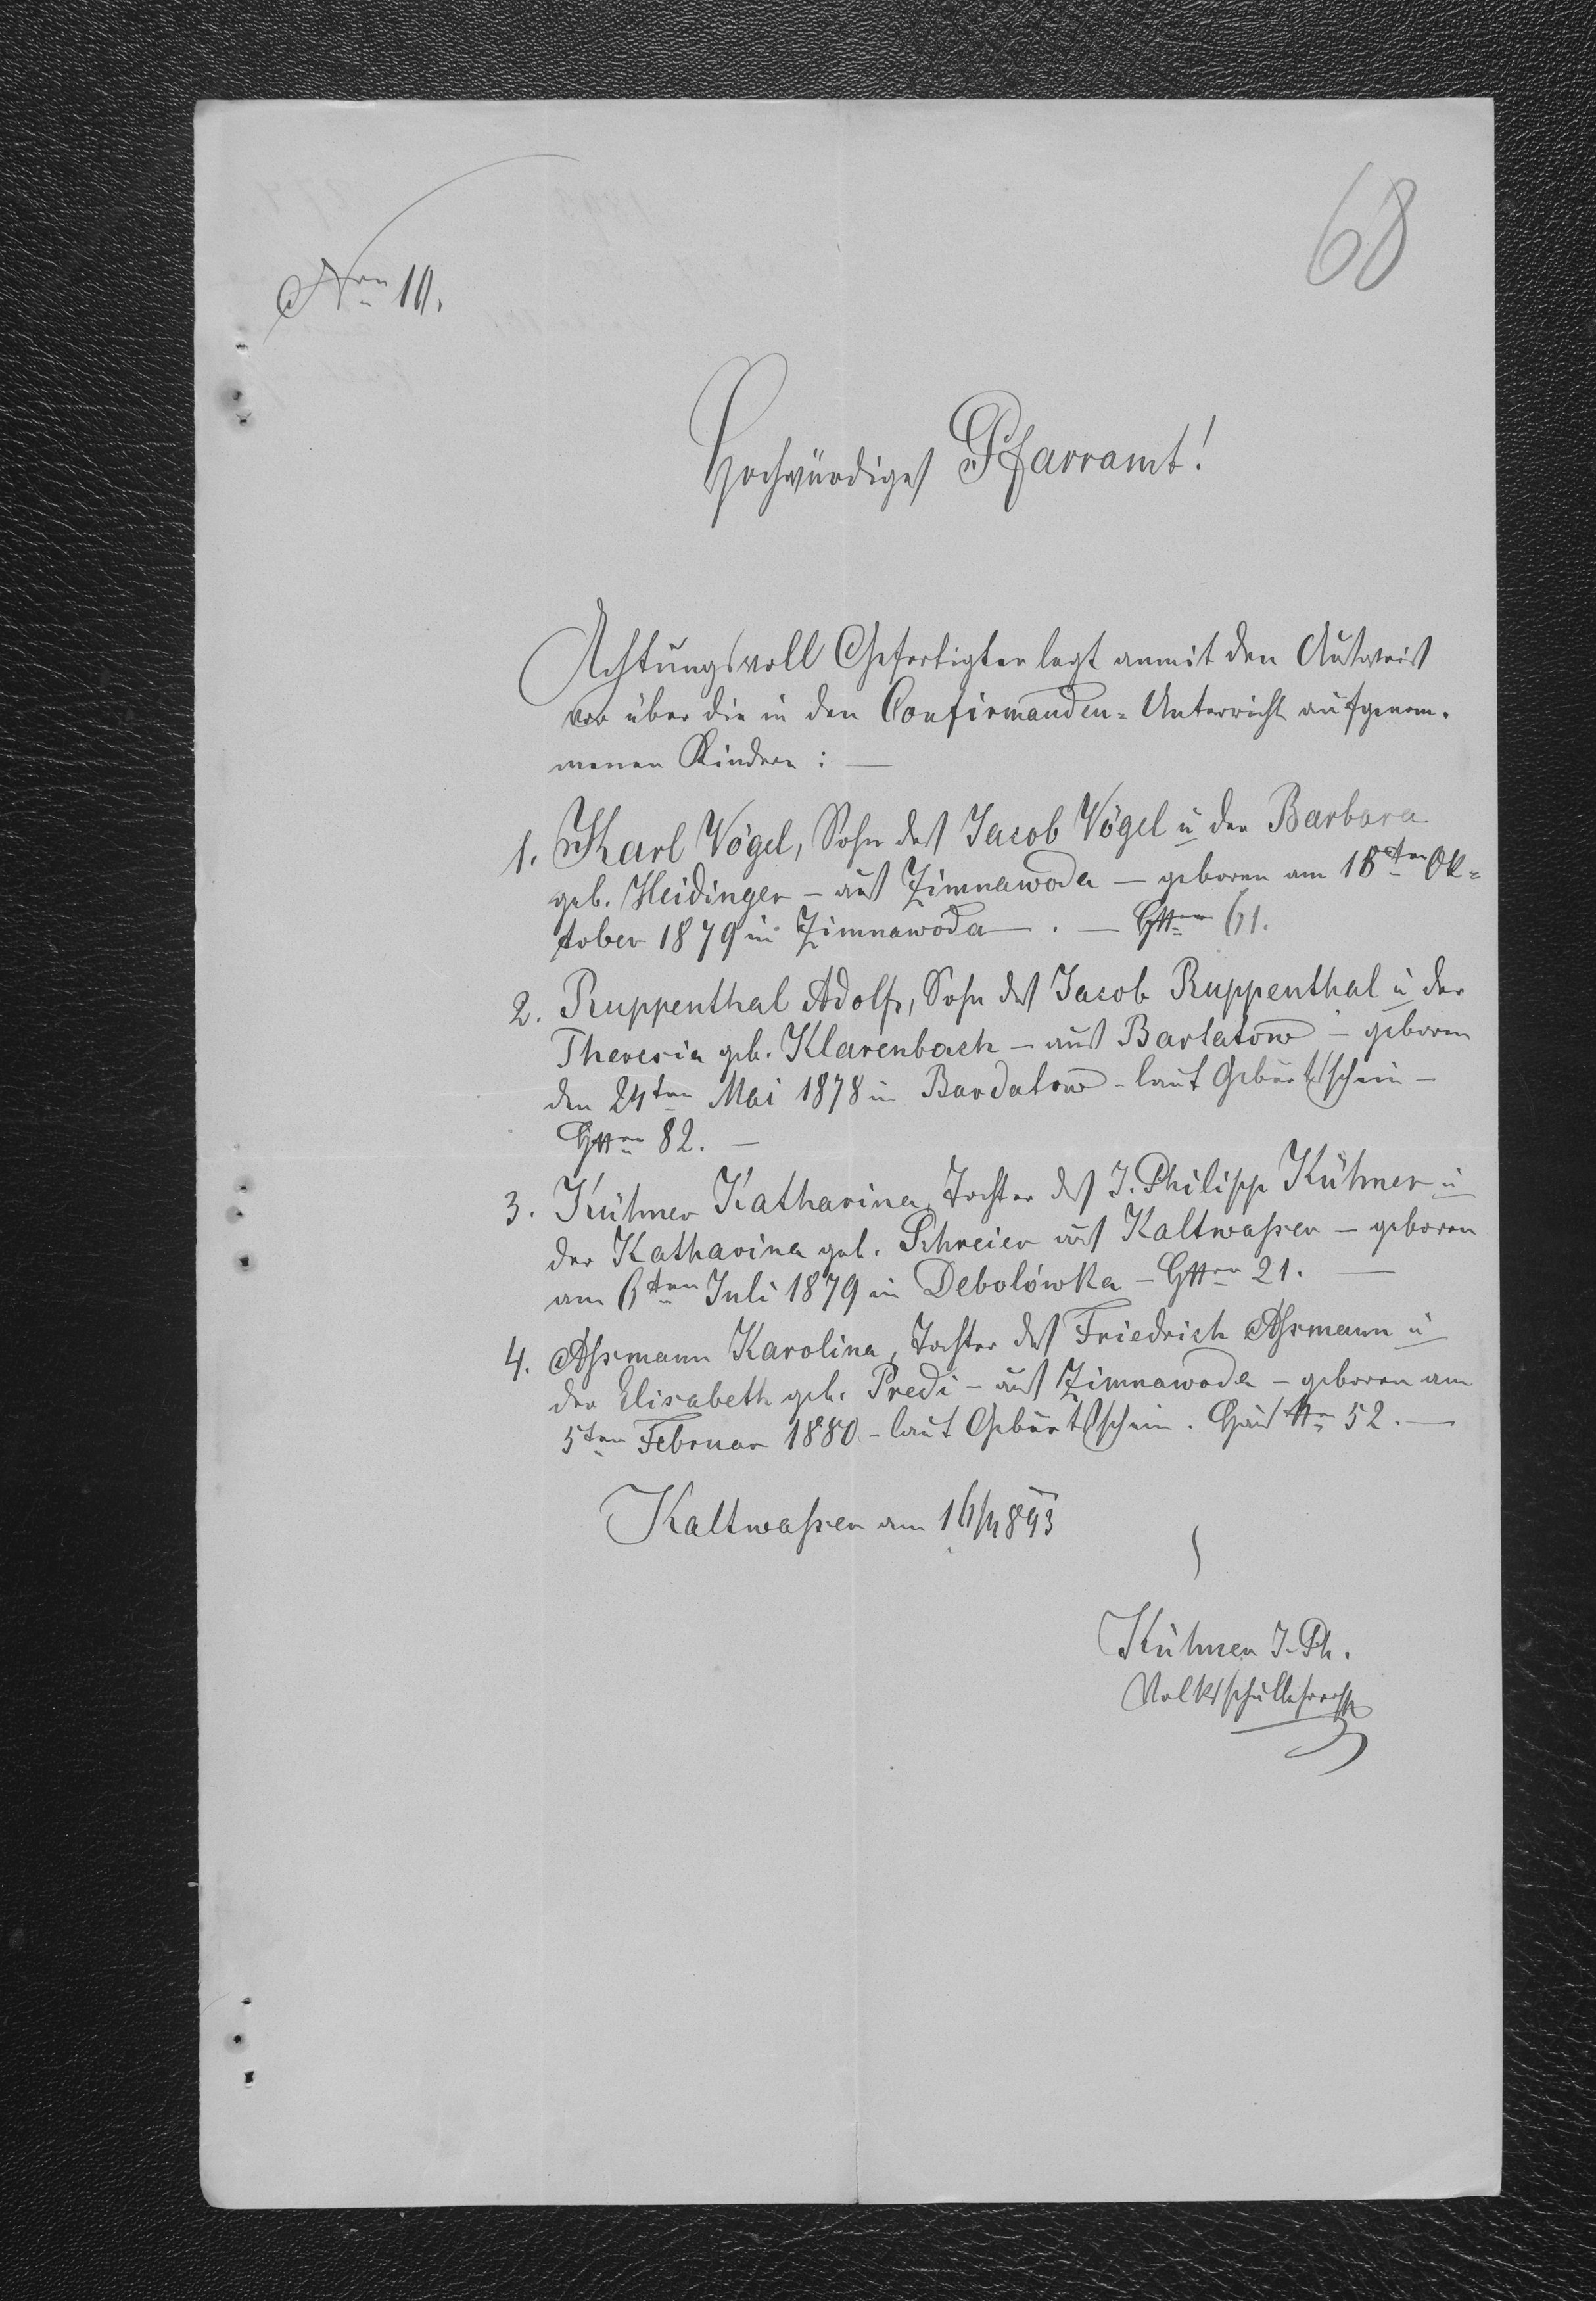 68
Nro 10.
Hochwürdiges Pfarramt!
Achtungsvoll Gefertigter legt anmit den Ausweis
vor über die in den Confirmanden-Unterricht aufgenom-
menen Kinder: —
1. Karl Vögel, Sohn des Jacob Vögel u der Barbara
geb. Heidinger – aus Zimnawoda – geboren am 18ten Ok-
tober 1879 in Zimnawoda —. — HNro 61.
2. Ruppenthal Adolf, Sohn des Jacob Ruppenthal u der
Theresia geb. Klarenbach – aus Bartatow – geboren
den 24ten Mai 1878 in Bardatow – laut Geburtsschein –
HNro 82. —
3. Kühner Katharina, Tochter des J. Philipp Kühner u
der Katharina geb. Schreier aus Kaltwaßer – geboren
am 6ten Juli 1879 in Debolówka – HNro 21. —
4. Aßmann Karolina, Tochter des Friedrich Aßmann u
der Elisabeth geb. Predi – aus Zimnawoda – geboren am
5ten Februar 1880 – laut Geburtsschein. Haus Nro 52. —
Kaltwaßer am 893
Kühner J. Ph.
Volksschullehrer